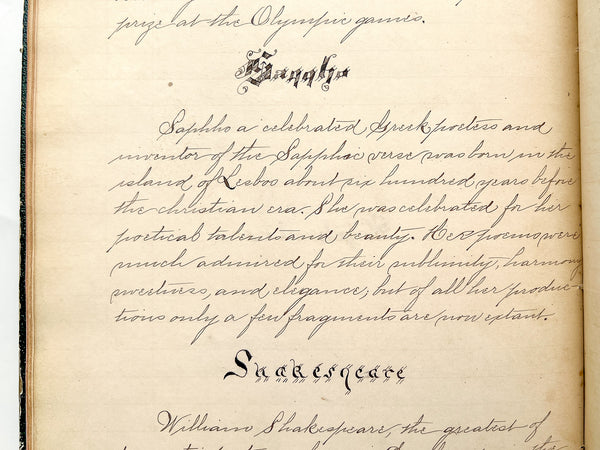 prize at the Olympic games.
Sappho
Saphho a celebrated Greek poetess and
inventor of the Sapphic verse was born in the
island of Lesbos about six hundred years before
the christian era. She was celebrated for her
poetical talents and beauty. Her poems were
much admired for their sublimity, harmony
sweetness, and elegance; but of all her produc-
tions only a few fragments are now extant.
Shakespeare
William Shakespeare, the greatest of